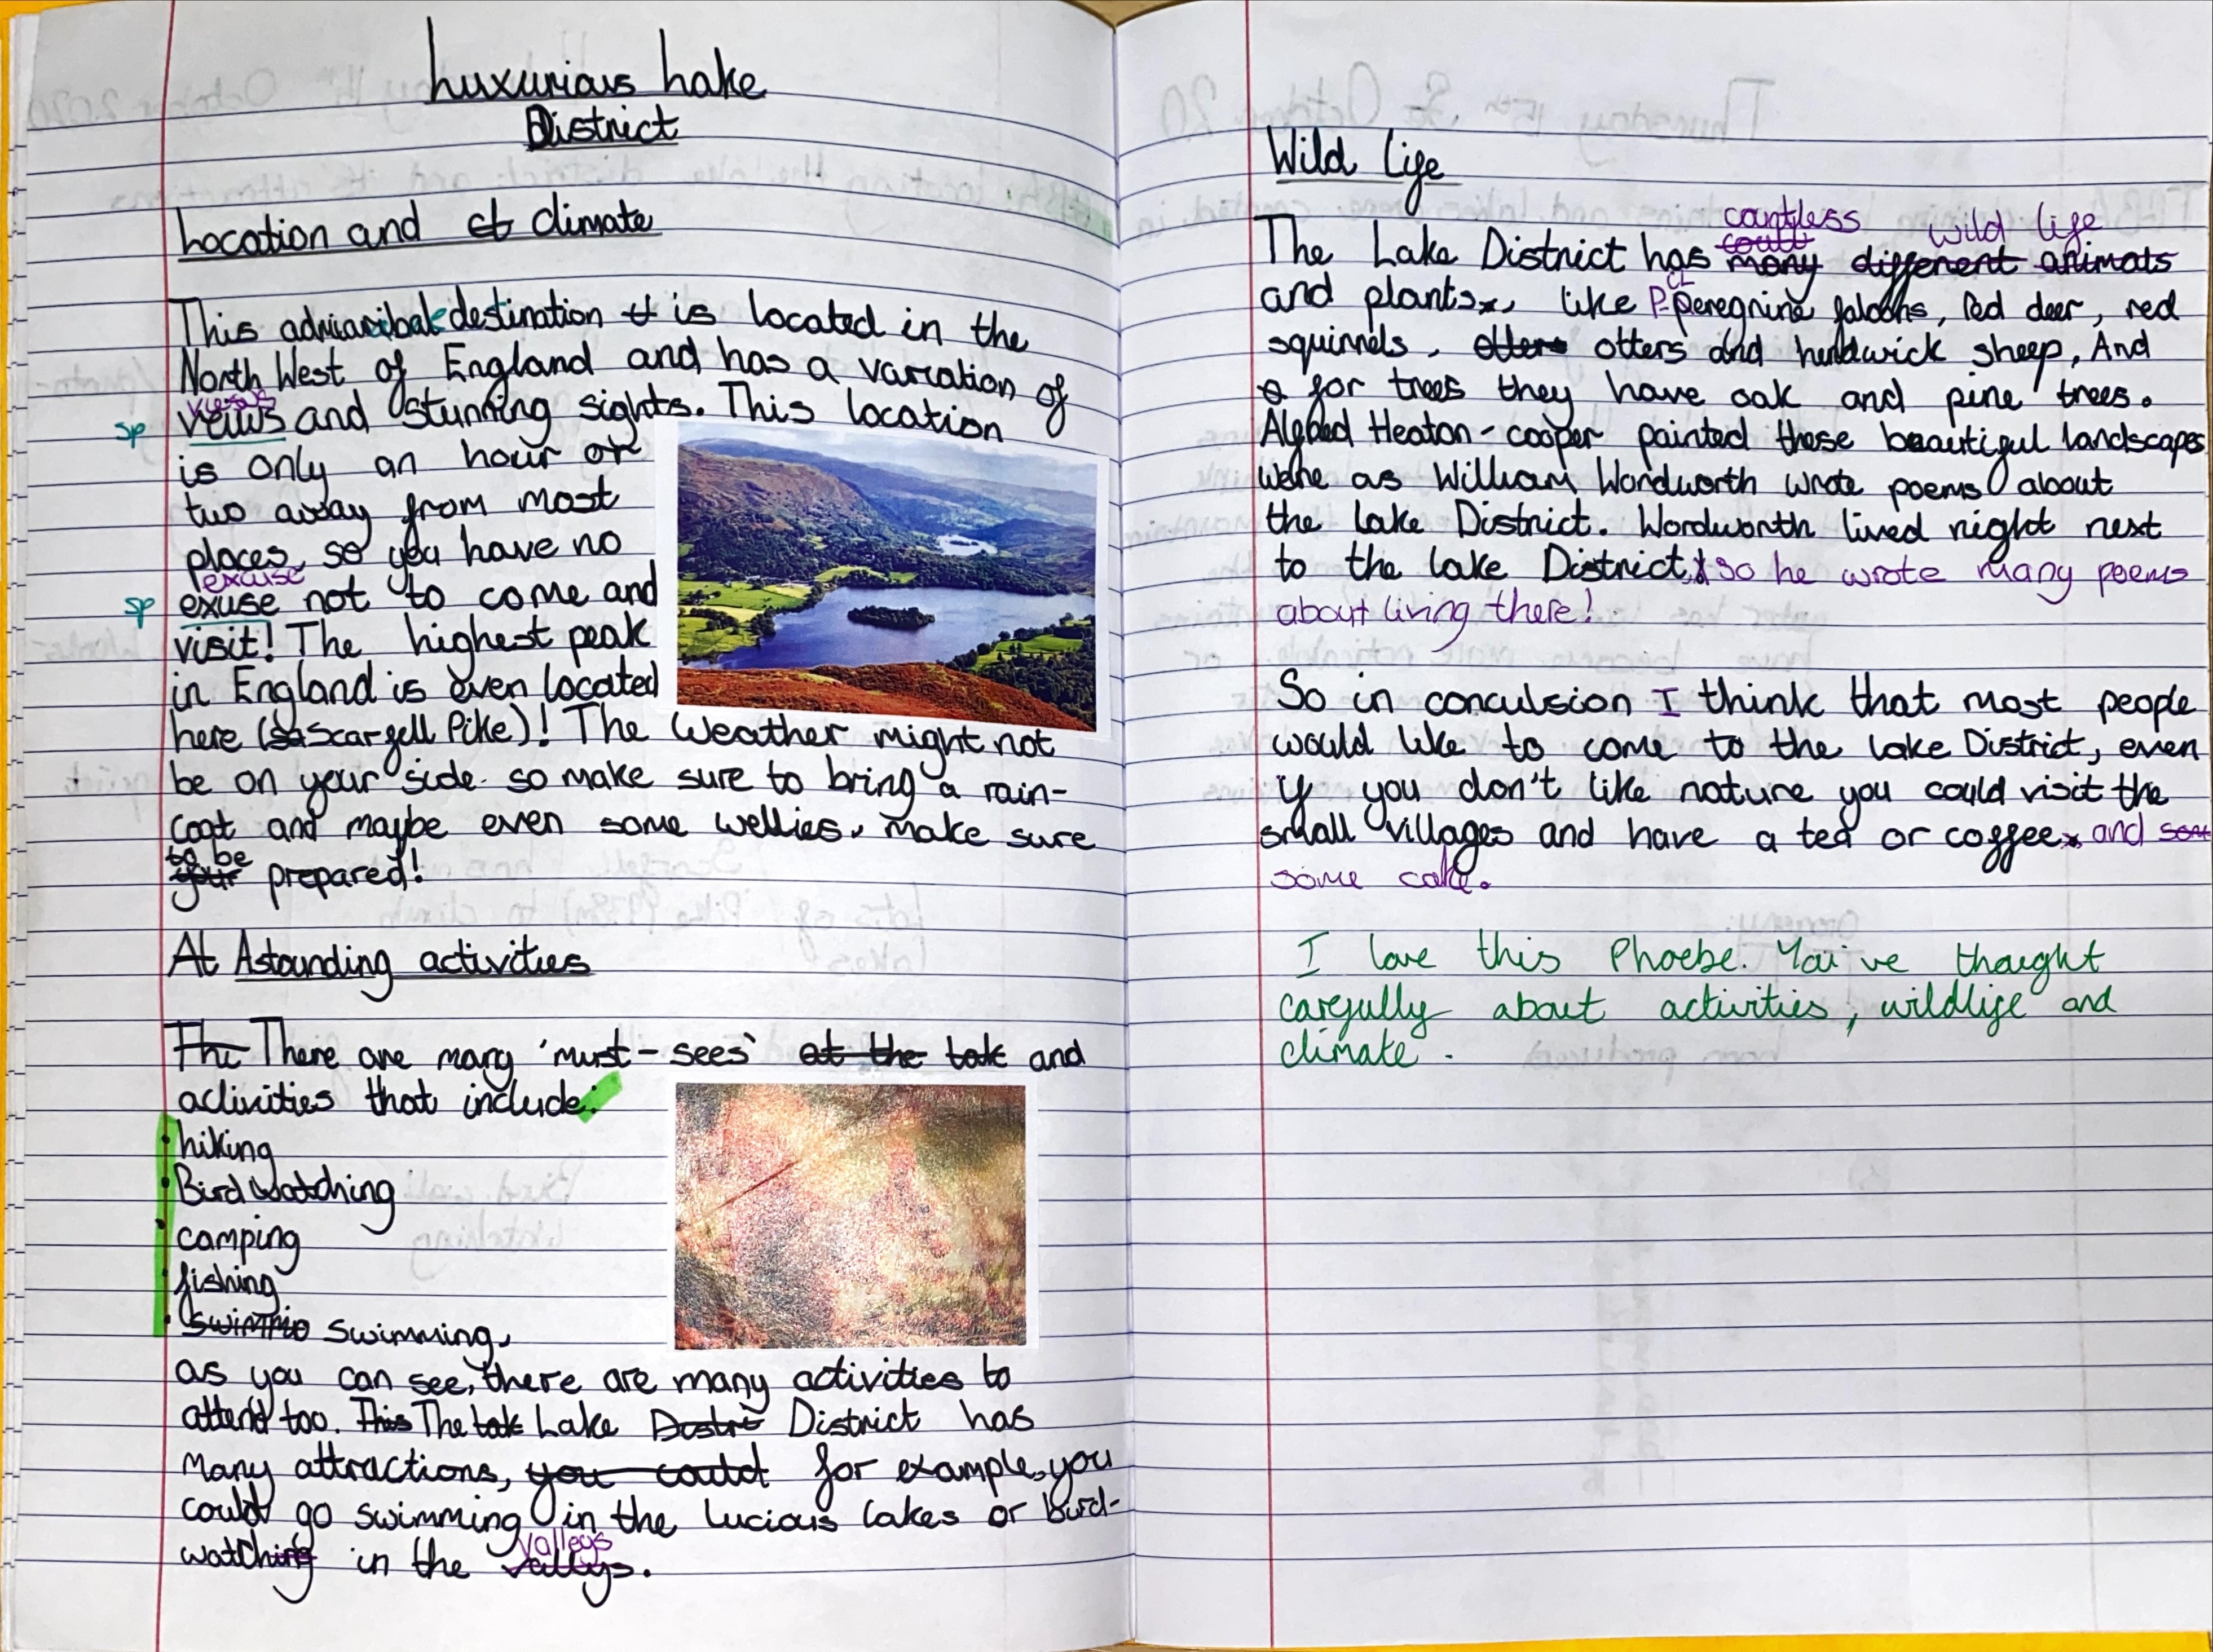 Luxurious Lake
District
Location and cl climate
This admirable destination it is located in the
North West of England and has a variation of
views
sp veiws and stunning sights. This location
is only an hour or
two away from most
places, so you have no
excuse
sp exuse not to come and
visit! The highest peak
in England is even located
here (sa Scargell Pike)! The Weather might not
be on your side. so make sure to bring a rain-
coat and maybe even some wellies, make sure
to be
your prepared!
At Astounding activities
Thi There are many 'must-sees' at the lak and
activities that include:
• hiking
• Bird watching
• camping
• fishing
• swimmio swimming,
as you can see, there are many activities to
attend too. This The lak Lake Distri District has
many attractions, you could for example, you
could go swimming in the lucious lakes or bird-
valleys
watching in the vallys.
Wild Life
countless wild life
The Lake District has coutt many different animals
and plants, like P peregrine falcons, Red deer, red
squirrels, otters otters and herdwick sheep, And
for trees they have oak and pine trees.
Heaton-cooper painted these beautiful landscapes
were as William Wordworth wrote poems about
the Lake District. Wordworth lived right next
to the lake District, so he wrote many poems
about living there!
So in conculsion I think that most people
would like to come to the lake District, even
if you don't like nature you could visit the
small villages and have a tea or coffee and som
some cake.
I love this Phoebe. You've thought
carefully about activities, wildlife and
climate.